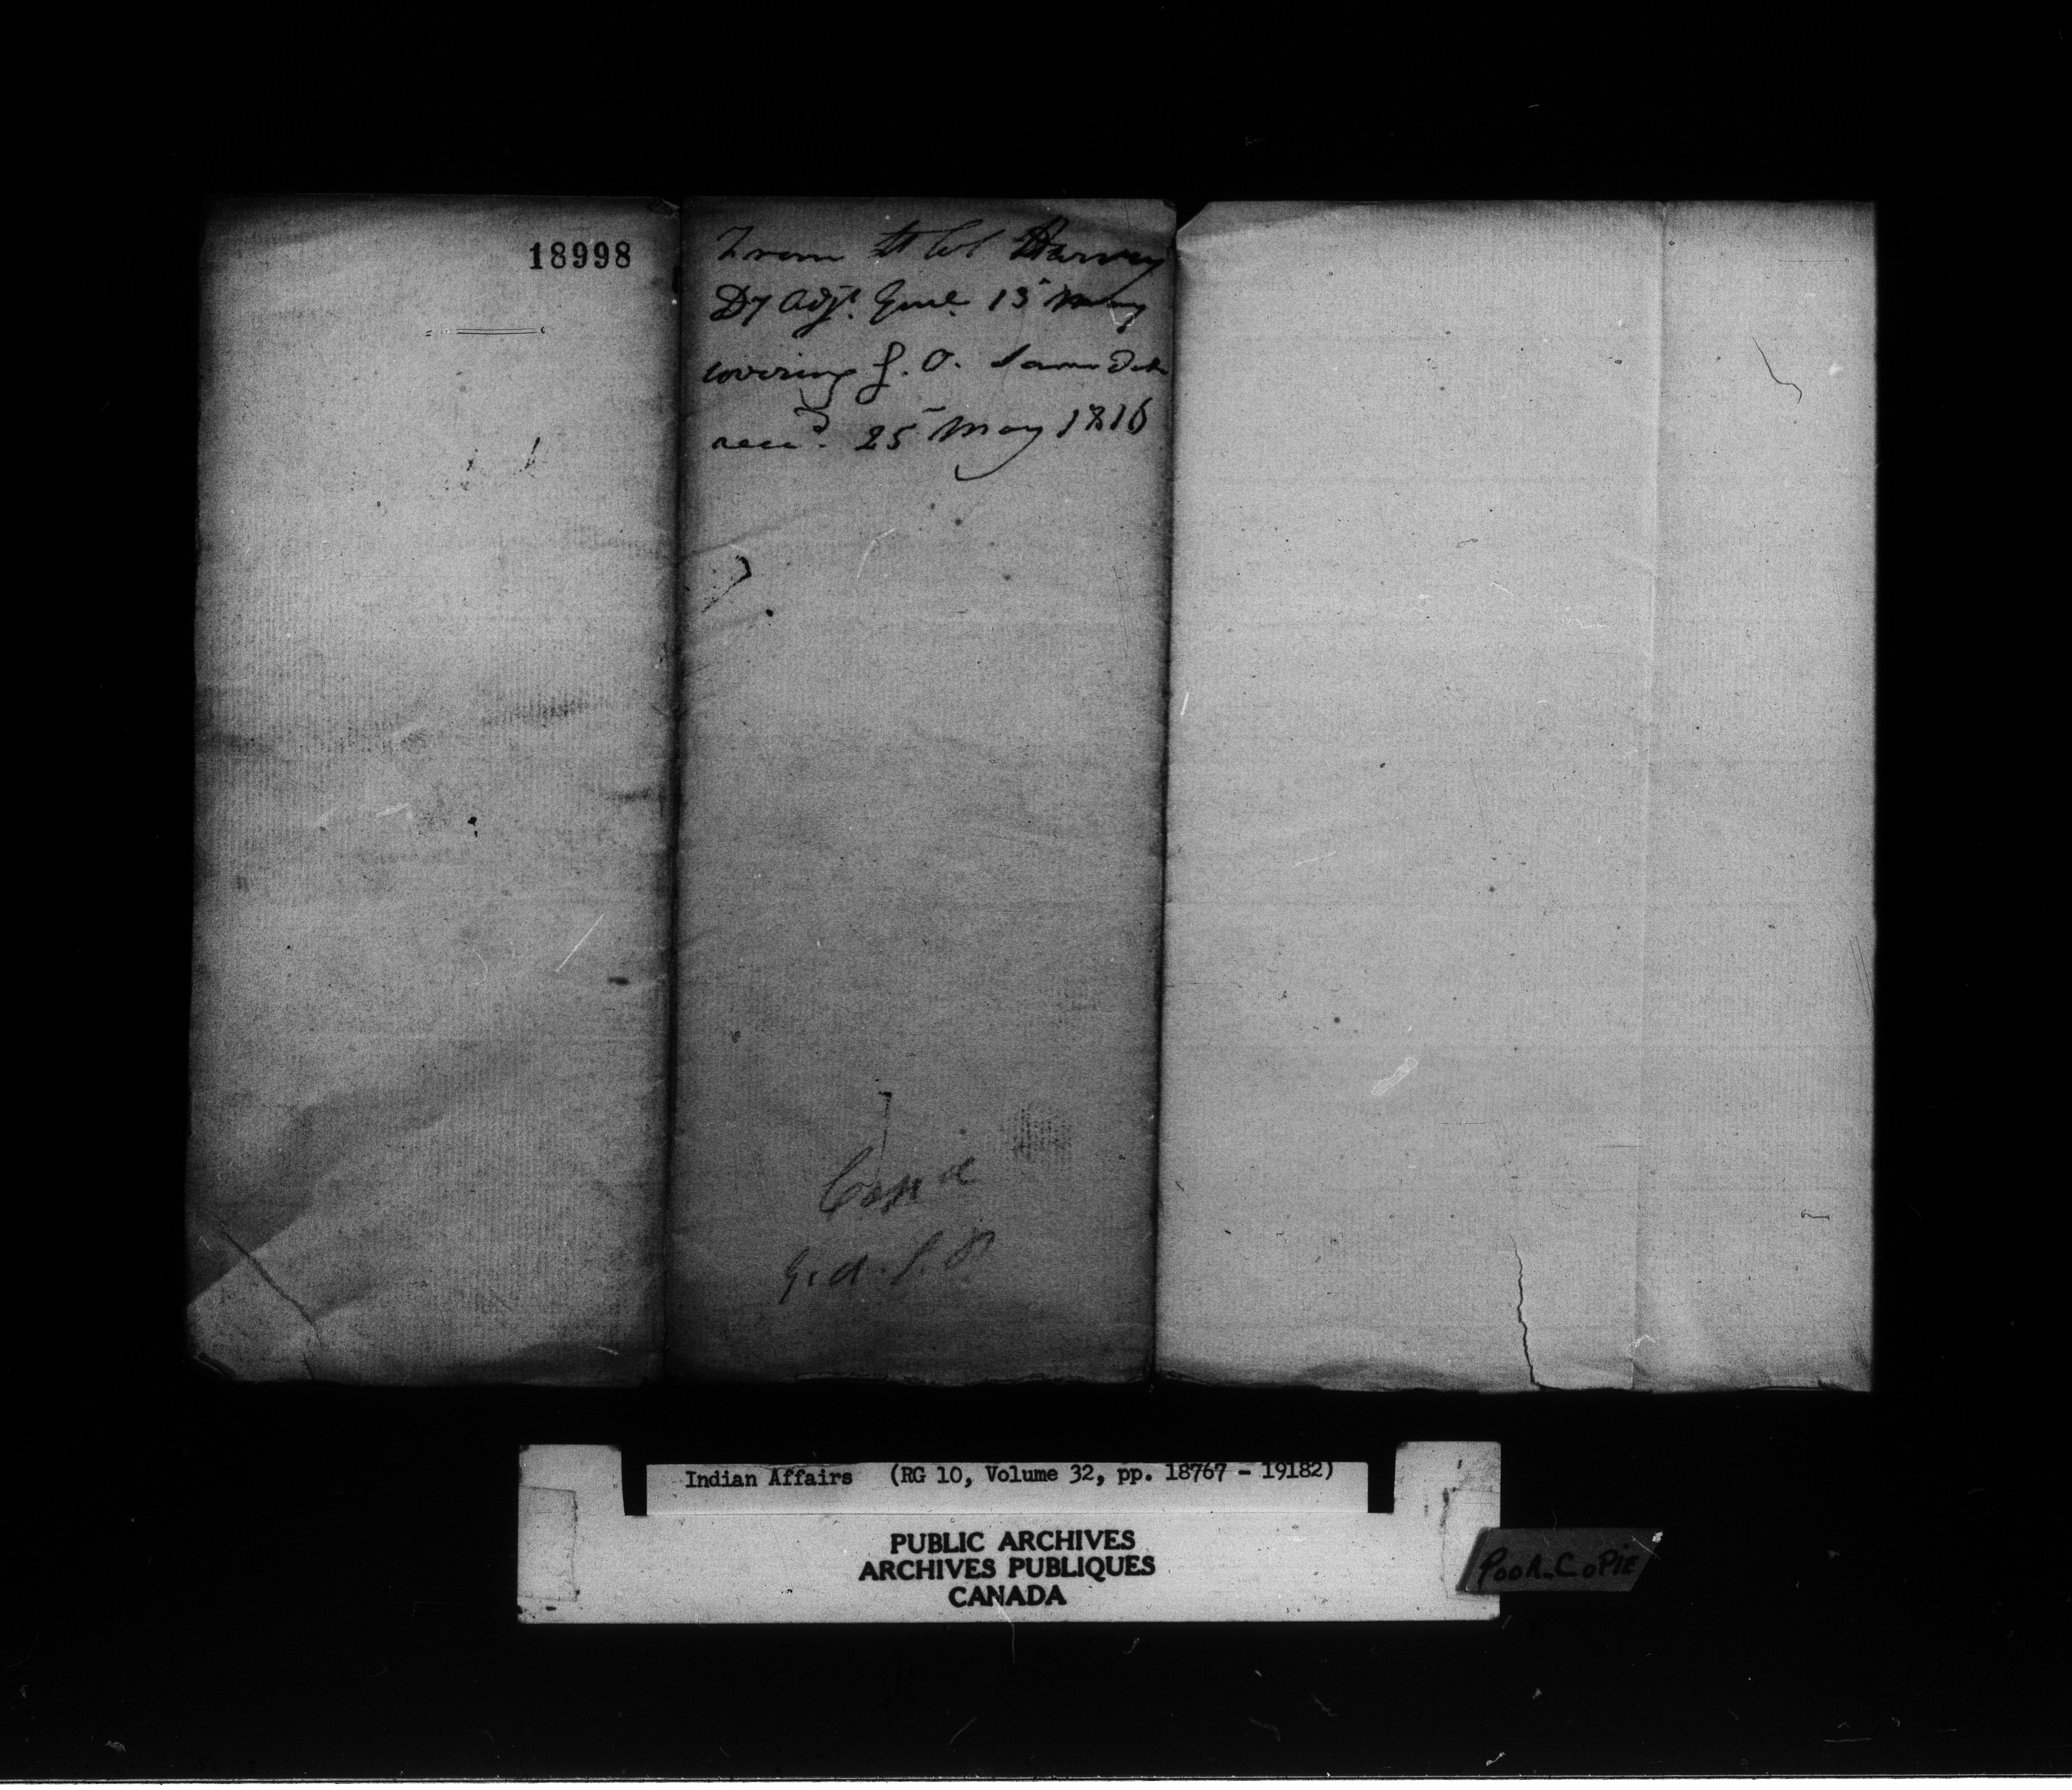 18998
From Lt Col Harvey
Dy Adjt. Genl. 15 May
covering G. O. same Date
recd. 25 May 1816
Indian Affairs (RG 10, Volume 32, pp. 18767 - 19182)
PUBLIC ARCHIVES
ARCHIVES PUBLIQUES
CANADA
POOR COPIE